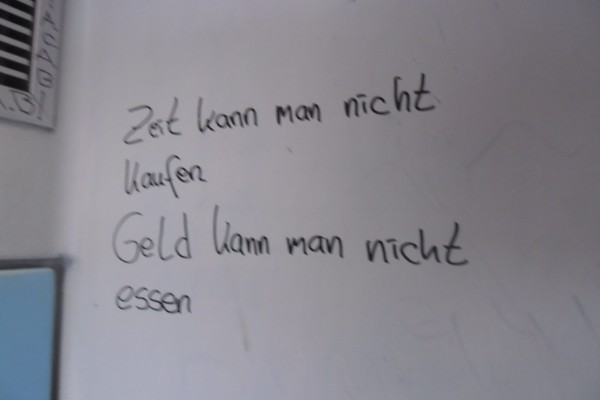 Zeit kann man nicht
kaufen
Geld kann man nicht
essen